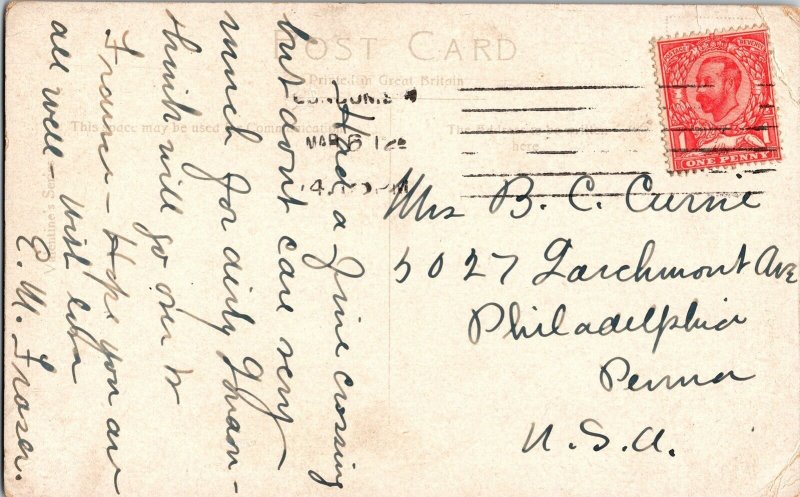 POST CARD
Printed in Great Britain
This space may be used for Communication
The Address to be written
here.
Valentine's Series
POSTAGE REVENUE
1
ONE PENNY
LONDON.E
MAR 6 12
PM
Had a fine crossing
but dont care very
much for dirty London -
think will go over to
France - Hope you are
all well - with
E. M. Fraser.
Mrs B. C. Currie
5027 Larchmont Ave
Philadelphia
Penna
U.S.A.